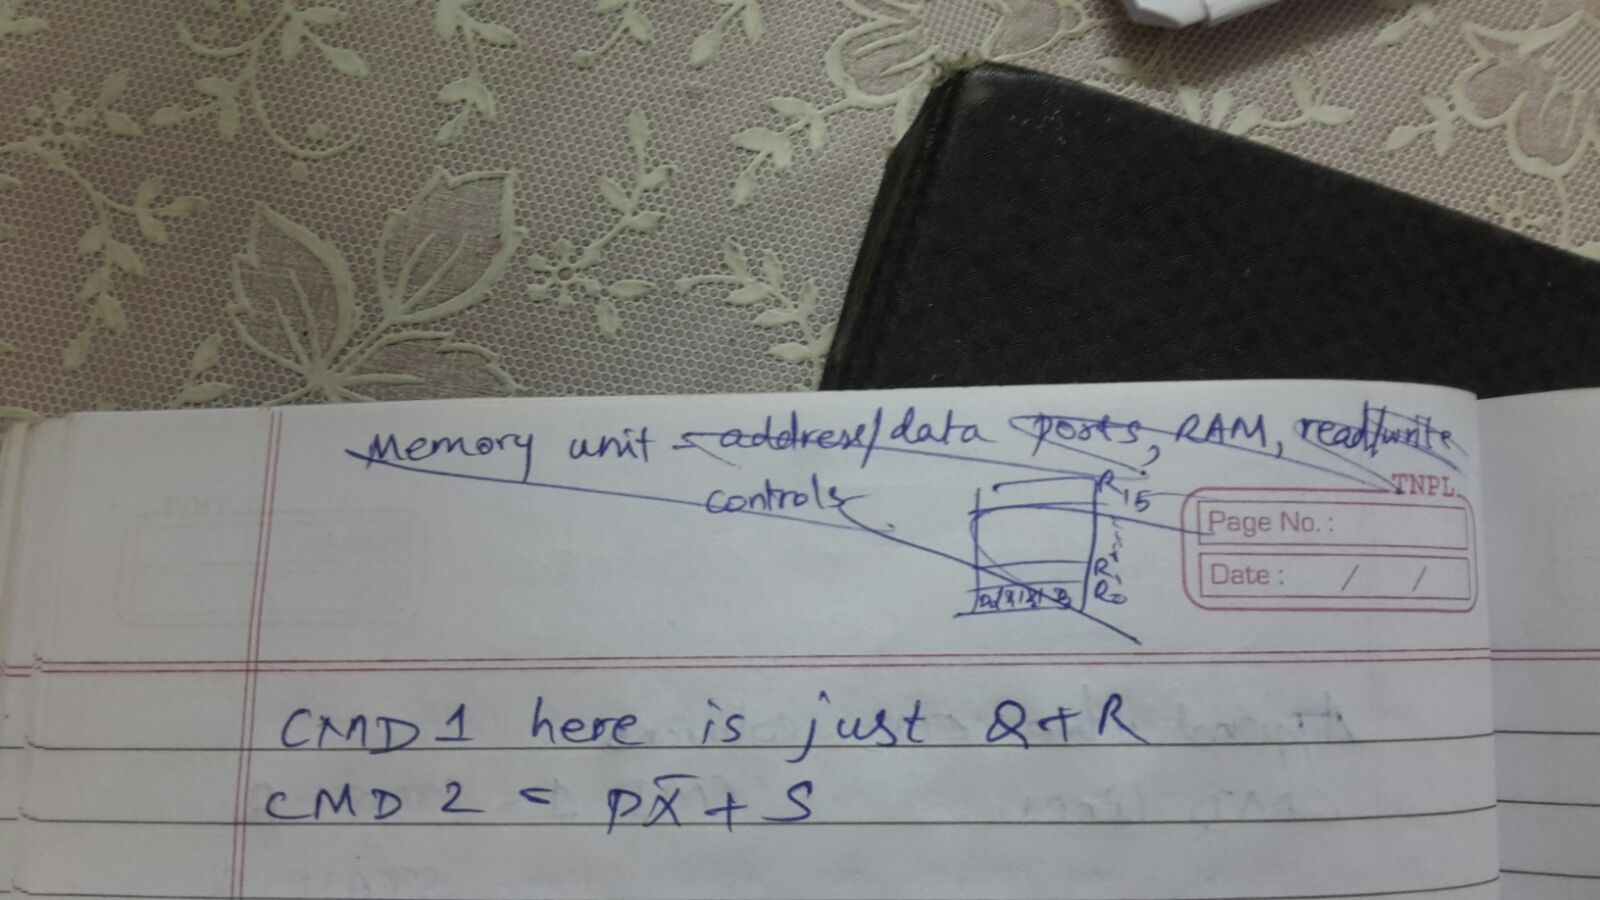 Memory unit - address/data ports, RAM, read/write
controls
R15
R1
R0
TNPL
Page No. :
Date : / /
CMD 1 here is just Q + R
CMD 2 = PX̅ + S